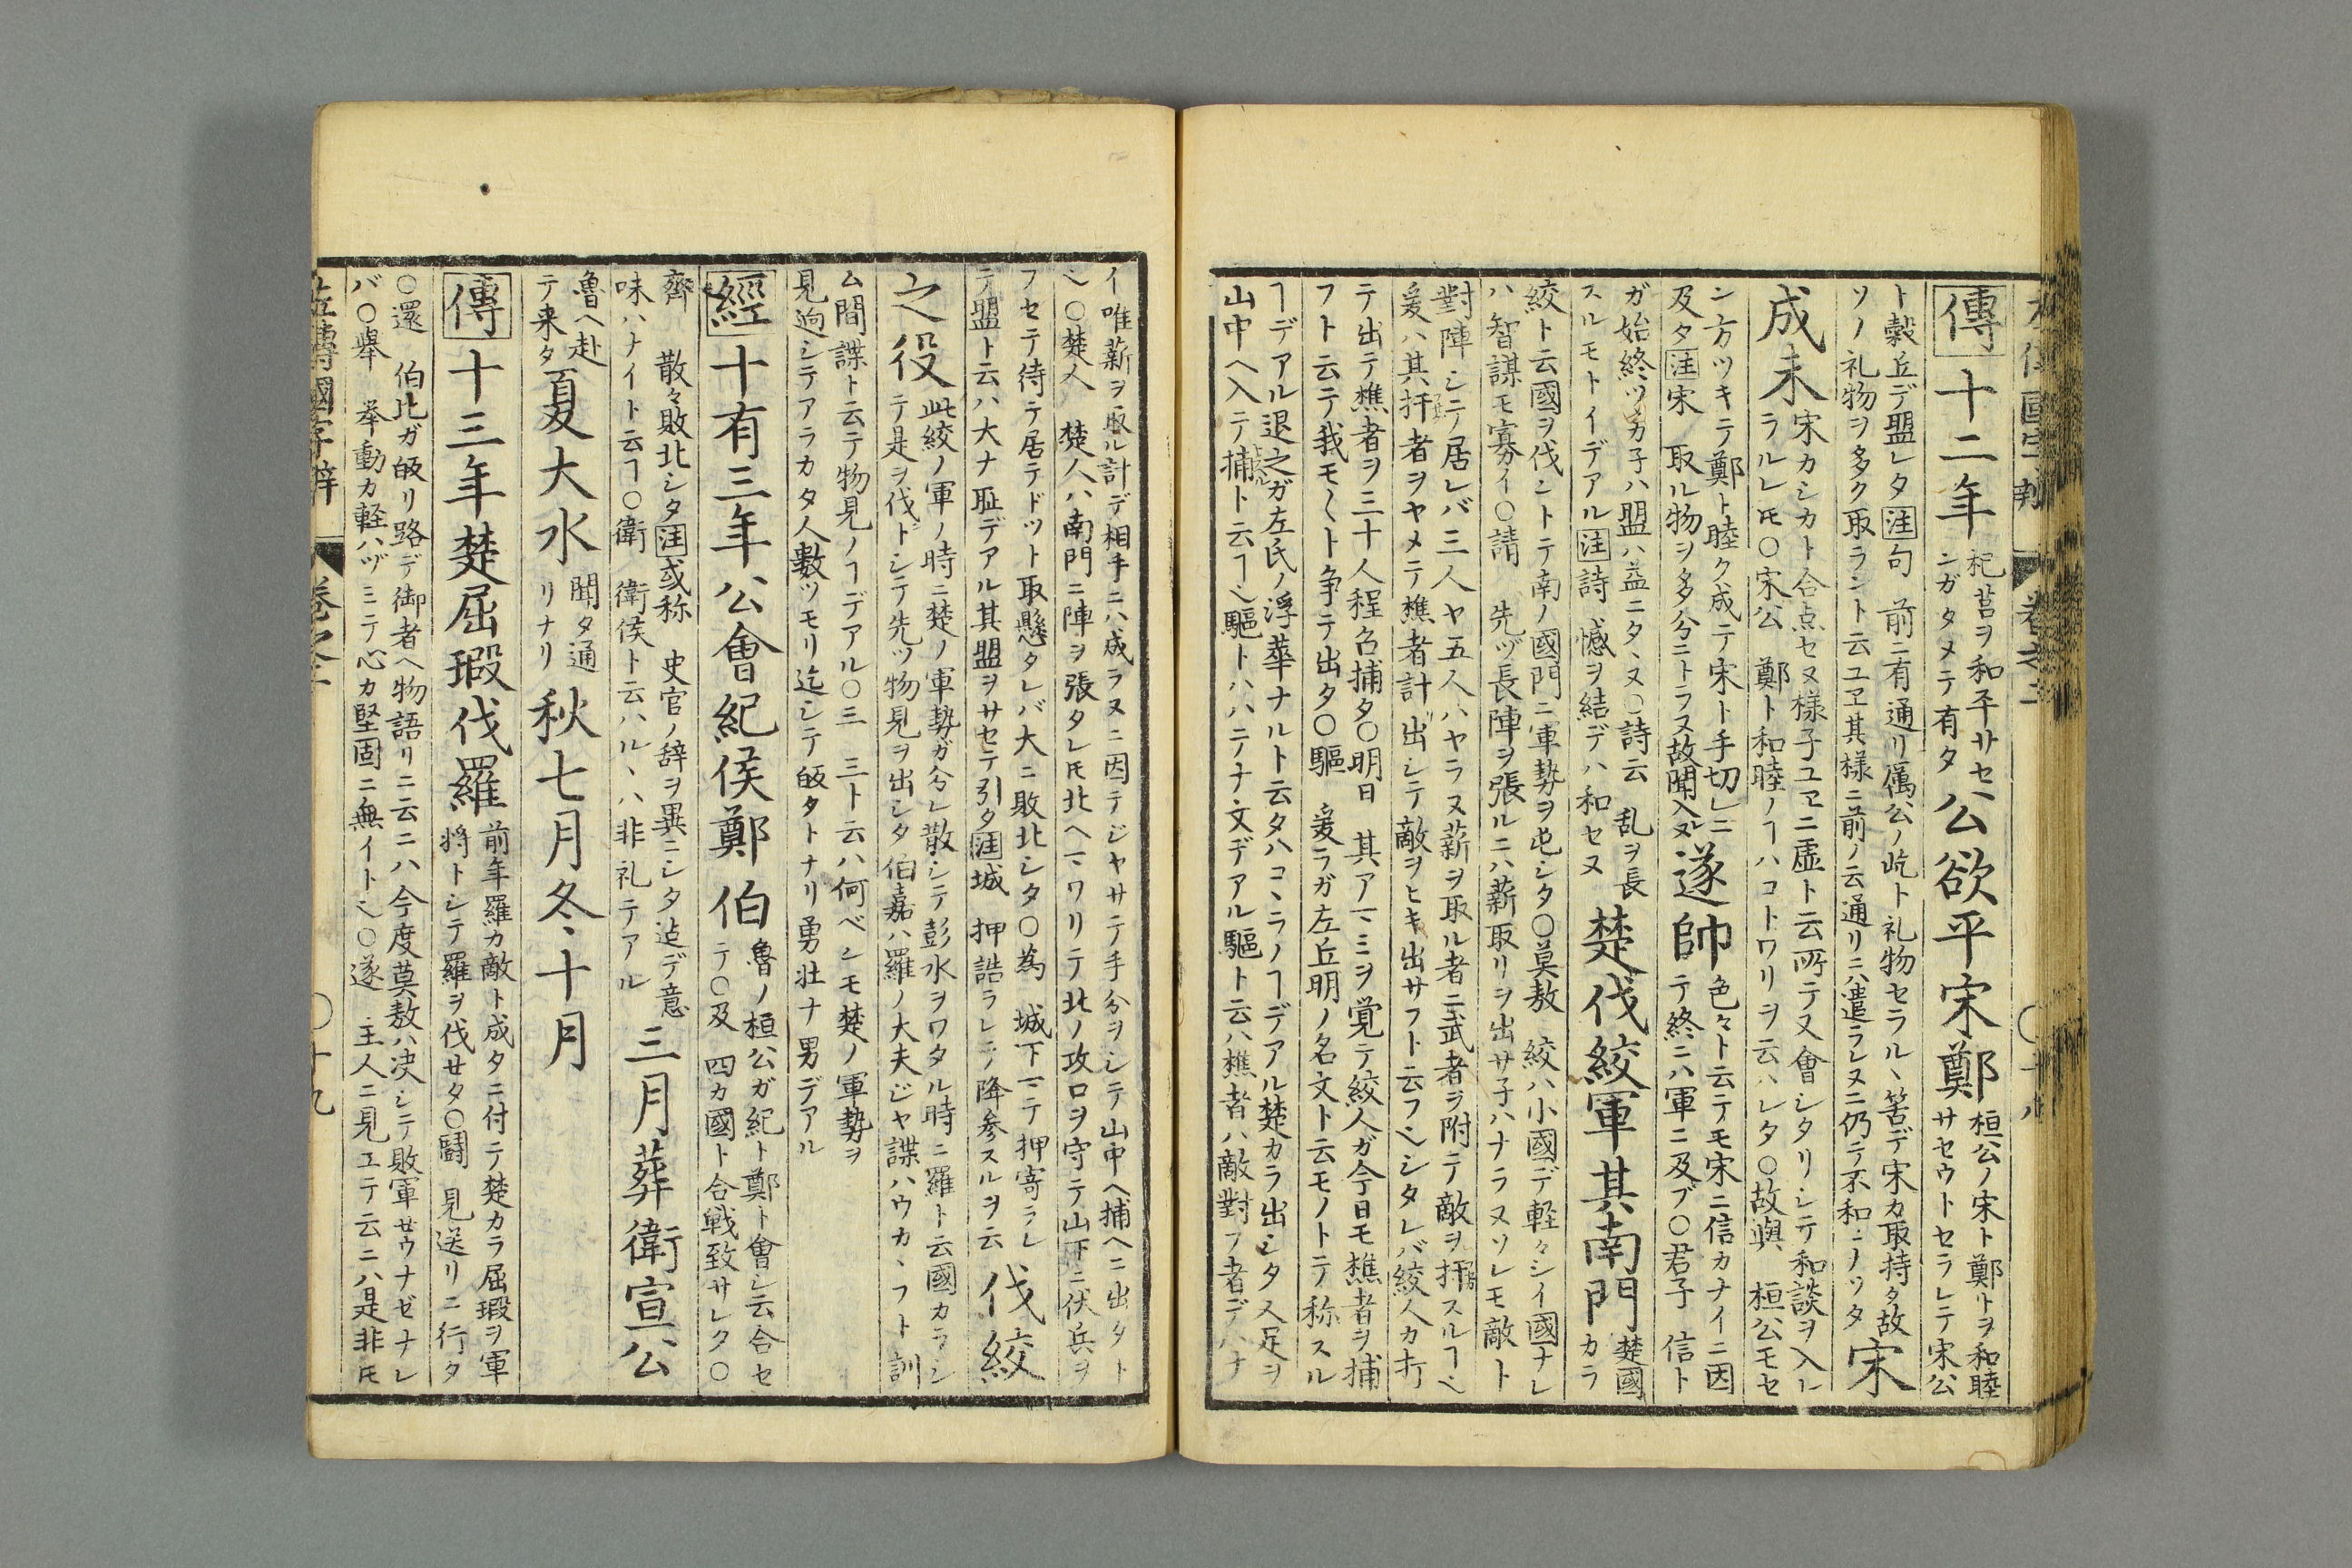 傳十二年
杞莒ヲ和平サセ
ンガタメテ有タ
公欲平宋鄭
桓公ノ宋ト鄭トヲ和睦
サセウトセラレテ宋公
ト穀丘デ盟レタ注句 前ニ有通リ厲公ノ訖ト礼物セラル丶筈デ宋カ取持タ故
ソノ礼物ヲ多ク取ラント云ユヱ其様ニ前ノ云通リニハ遣ラレヌニ仍テ不和ニノツタ
宋
成未
宋カシカト合点セヌ様子ユヱニ虚ト云所テ又會シタリシテ和談ヲ入レ
ラルレ𪜈○宋公 鄭ト和睦ノヿハコトワリヲ云ハレタ○故與 桓公モセ
ン方ツキテ鄭ト睦ク成テ宋ト手切レニ
及タ注宋 取ル物ヲ多分ニトラス故聞入ヌ
遂帥
色々ト云テモ宋ニ信カナイニ因
テ終ニハ軍ニ及ブ○君子 信ト
ガ始終ツヾカ子ハ盟ハ益ニタヽヌ○詩云 乱ヲ長
スルモトイデアル注詩 憾ヲ結デハ和セヌ
楚伐絞軍其南門
楚國
カラ
絞ト云國ヲ伐ントテ南ノ國門ニ軍勢ヲ屯シタ○莫敖 絞ハ小國デ軽々シイ國ナレ
ハ智謀モ寡イ○請 先ヅ長陣ヲ張ルニハ薪取リヲ出サ子ハナラヌソレモ敵ト
對陣シテ居レバ三人ヤ五人ハヤラヌ薪ヲ取ル者ニ武者ラ附テ敵ヲ扞スルヿ〵
爰ハ其扞者ヲヤメテ樵者計出シテ敵ヲヒキ出サフト云フ〵シタレバ絞人カ打
テ出テ樵者ヲ三十人程召捕タ○明日 其アマミヲ覚テ絞人ガ今日モ樵者ヲ捕
フト云テ我モ〱ト争テ出タ○驅 爰ラガ左丘明ノ名文ト云モノトテ称スル
ヿデアル退之ガ左氏ノ浮華ナルト云タハコヽラノヿデアル楚カラ出シタ人足ヲ
山中ヘ入テ捕ト云ヿ〵驅トハハニテナ文デアル驅ト云ハ樵者ハ敵對フ者デハナ
イ唯薪ヲ取ル計デ相手ニハ成ラヌニ因テジヤサテ手分ヲシテ山中ヘ捕ヘニ出タト
〵○楚人 楚人ハ南門ニ陣ヲ張タレ𪜈北ヘマワリテ北ノ攻口ヲ守テ山下ニ伏兵ヲ
フセテ待テ居テドツト取懸タレバ大ニ敗北シタ○為 城下マテ押寄ラレ
テ盟ト云ハ大ナ耻デアル其盟ヲサセテ引タ注城 押詰ラレテ降参スルヲ云
伐絞
之役
此絞ノ軍ノ時ニ楚ノ軍勢ガ分レ散シテ彭水ヲワタル時ニ羅ト云國カラシ
テ是ヲ伐トシテ先ツ物見ヲ出シタ伯嘉ハ羅ノ大夫ジヤ諜ハウカヽフト訓
ム間諜ト云テ物見ノヿデアル○三 三ト云ハ何ベシモ楚ノ軍勢ヲ
見逈シテアラカタ人數ツモリ迄シテ皈タトナリ勇壮ナ男デアル
經十有三年公會紀侯鄭伯
魯ノ桓公ガ紀ト鄭ト會シ云合セ
テ○及 四カ國ト合戦致サレタ○
齊 散々敗北シタ注或称 史官ノ辞ヲ異ニシタ迠デ意
味ハナイト云ヿ○衛 衛侯ト云ハルヽハ非礼テアル
三月葬衛宣公
魯ヘ赴
テ来タ
夏大水
聞タ通
リナリ
秋七月冬十月
傳十三年楚屈瑕伐羅
前年羅カ敵ト成タニ付テ楚カラ屈瑕ヲ軍
将トシテ羅ヲ伐サタ○鬪 見送リニ行タ
○還 伯比ガ皈リ路デ御者ヘ物語リニ云ニハ今度莫敖ハ决シテ敗軍サウナゼナレ
バ○舉 挙動カ軽ハヅミニテ心カ堅固ニ無イト〵○遂 主人ニ見エテ云ニハ是非𪜈
左傳國字辯 卷之二 ○十九